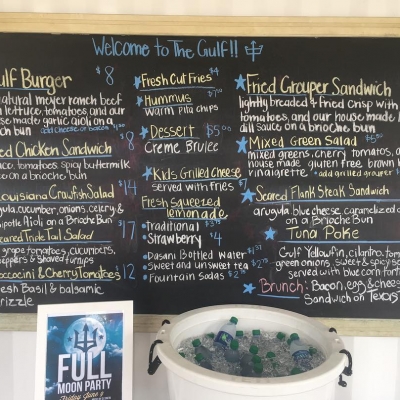 Welcome to The Gulf!!
ulf Burger $8
natural meyer ranch beef
lettuce, tomatoes, and our
made garlic aioli on a
bun add cheese or bacon
ed Chicken Sandwich $8
uce, tomatoes, spicy buttermilk
on a brioche bun
ouisiana Crawfish Salad $14
gula, cucumber, onions, celery &
hipotle Aioli on a Brioche Bun
eared Triple Tail Salad $17
grape tomatoes, cucumbers,
peppers & shaved turnips
occoncini & Cherry Tomatoes 12
resh Basil & balsamic
rizzle
Fresh Cut Fries $4
Hummus $7.00
Warm pita chips
Dessert $5.00
Creme Brulee
Kids Grilled Cheese
served with fries $7
Fresh squeezed
lemonade
Traditional $3
Strawberry $4
Dasani Bottled Water
Sweet and Unsweet tea
Fountain Sodas
Fried Grouper Sandwich
lightly breaded & fried crisp with
tomatoes, and our house made
dill sauce on a brioche bun
Mixed Green Salad
mixed greens, cherry tomatoes,
house made gluten free, brown
vinaigrette add grilled grouper
Seared Flank Steak Sandwich
arugula blue cheese caramelized
on a Brioche Bun
Tuna Poke
Gulf Yellowfin, cilantro,
green onions, sweet & spicy
served with blue corn
Brunch: Bacon, egg & cheese
Sandwich on Texas
FULL
MOON PARTY
Friday June